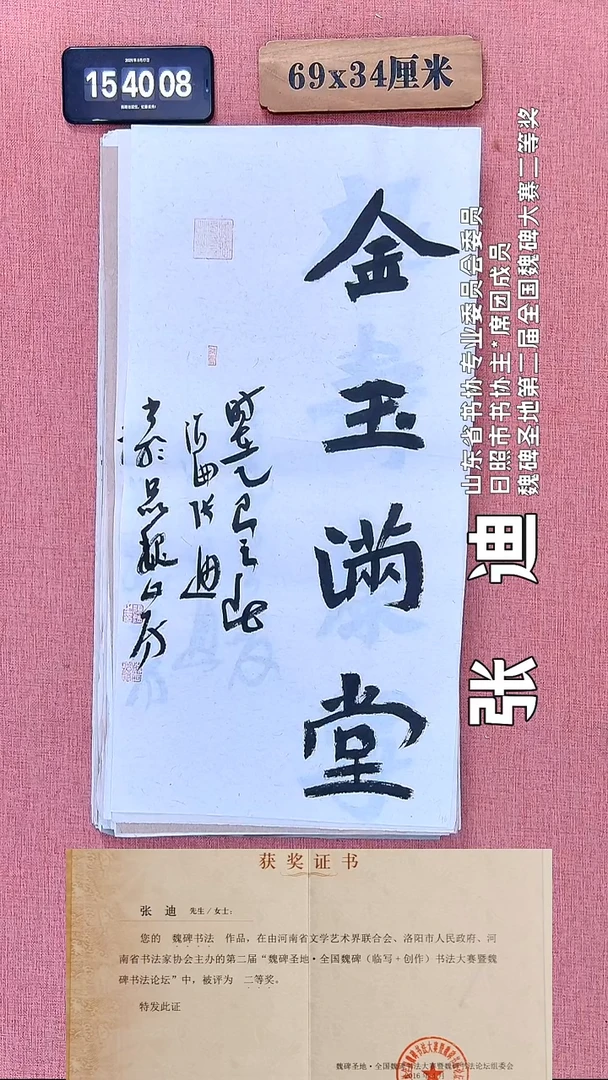 15 40 08
69x34厘米
金玉满堂
时在乙巳之
张迪
山东省书协专业委员会委员
日照市书协主*席团成员
魏碑圣地第二届全国魏碑大赛二等奖
张 迪
获奖证书
张 迪 先生/女士：
您的 魏碑书法 作品，在由河南省文学艺术界联合会、洛阳市人民政府、河
南省书法家协会主办的第二届“魏碑圣地·全国魏碑（临写+创作）书法大赛暨魏
碑书法论坛”中，被评为 二等奖。
特发此证
魏碑圣地·全国魏碑书法大赛暨魏碑书法论坛组委会